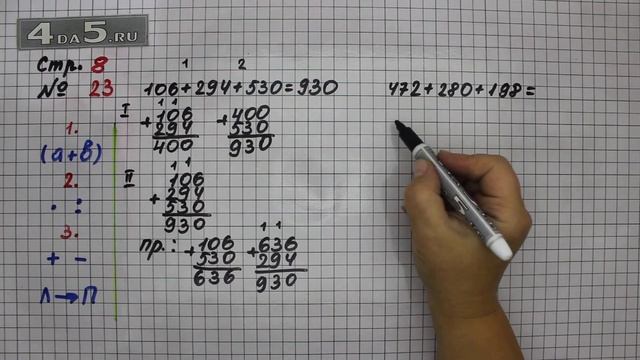 4DA5.RU
Стр. 8
№ 23
1.
(а+в)
2.
· :
3.
+ −
Л→П
1 2
106+294+530=930
I
1 1
106
+
294
400
+
400
530
930
II
1 1
106
294
+
530
930
пр.:
+
106
530
636
1 1
+
636
294
930
472+280+198=